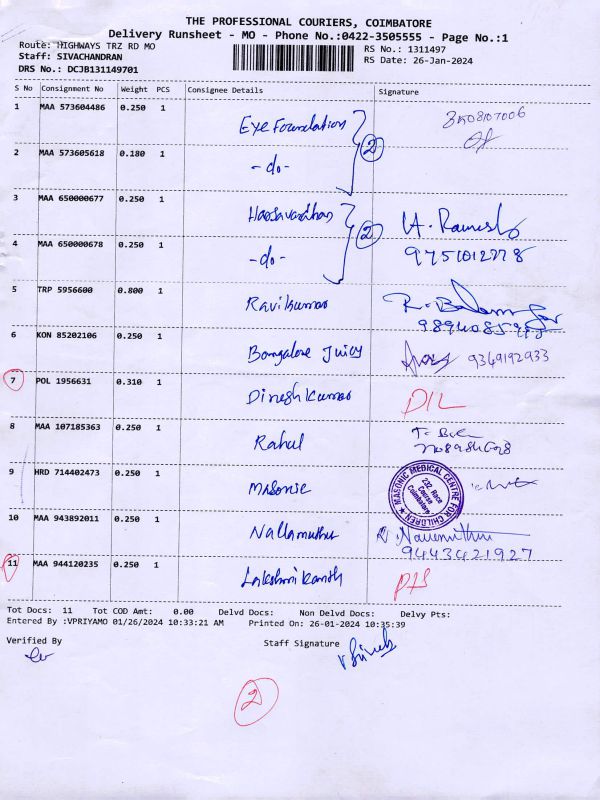 THE PROFESSIONAL COURIERS, COIMBATORE
Delivery Runsheet - MO - Phone No.:0422-3505555 - Page No.:1
Route: HIGHWAYS TRZ RD MO
RS No.: 1311497
Staff: SIVACHANDRAN
RS Date: 26-Jan-2024
DRS No.: DCJB131149701
S No Consignment No Weight PCS Consignee Details Signature
1 MAA 573604486 0.250 1 Eye Foundation
2 MAA 573605618 0.180 1 -do- 2
3 MAA 650000677 0.250 1 H. Ramesh
4 MAA 650000678 0.250 1 -do- 2 9751012778
5 TRP 5956600 0.800 1 Ravikumar
6 KON 85202106 0.250 1 Bangalore Juicy 9369192933
7 POL 1956631 0.310 1 Dineshkumar D/L
8 MAA 107185363 0.250 1 Rahul
9 HRD 714402473 0.250 1 Masonic
MASONIC MEDICAL CENTRE FOR CHILDREN
232, Race
Course
Coimbatore
10 MAA 943892011 0.250 1 Nallamuthu
9443421927
11 MAA 944120235 0.250 1 Lakshmikanth
Tot Docs: 11 Tot COD Amt: 0.00 Delvd Docs: Non Delvd Docs: Delvy Pts:
Entered By :VPRIYAMO 01/26/2024 10:33:21 AM Printed On: 26-01-2024 10:35:39
Verified By Staff Signature
2